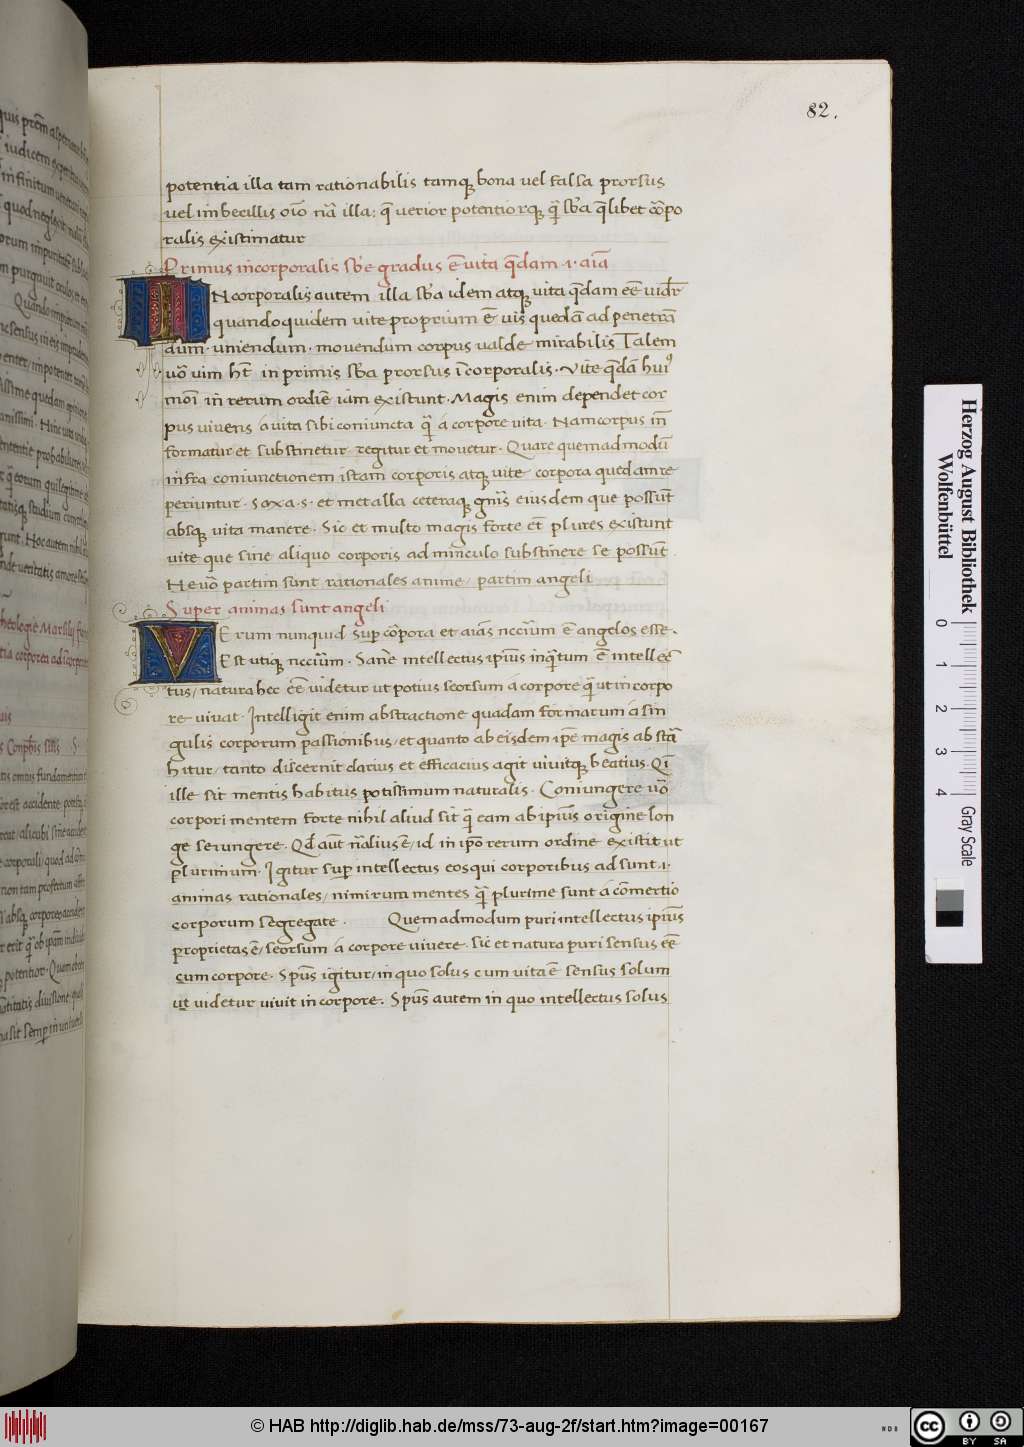 82.
potentia illa tam rationabilis tamq; bona uel falsa prorsus
uel imbecillis oīo nā illa: q̄ uerior potentiorq; q̄ sb̄a q̄libet cōrpo
ralis existimatur
Primus incorporalis sb̄e gradus ē uita q̄dam .i. aīa
INcorporalis autem illa sb̄a idem atq; uita q̄dam eē uidr̄
quandoquidem uite proprium ē uis quedā ad penetrā
dum. uniendum. mouendum corpus ualde mirabilis Talem
uō uim hn̄t in primis sb̄a prorsus īcorporalis. Vite q̄dā huiꝰ
mōi in rerum ordīe iam existunt. Magis enim dependet cor
pus uiuens á uita sibi coniuncta q̄ á corpore uita. Nam corpus in̄
formatur et substinetur regitur et mouetur. Quare quemadmodū
infra coniunctionem istam corporis atq; uite corpora quedam re
periuntur. saxa .s. et metalla ceteraq; gn̄is eiusdem que possūt
absq; uita manere. Sic et multo magis forte et̄ plures existunt
uite que sine aliquo corporis adminculo substinere se possūt.
He uō partim sunt rationales anime/ partim angeli
Super animas sunt angeli
VErum nunquid sup̄ cōrpora et aīas nccīum ē angelos esse.
Est utiq; nccīum. Sane intellectus ipīus inq̄tum ē intellec̄
tus/ natura hec eē uidetur ut potius seorsum á corpore q̄ ut in corpo
re uiuat. Intelligit enim abstractione quadam formarum á sin
gulis corporum passionibus/ et quanto ab eisdem ip̄e magis abstā
hitur/ tanto discernit clarius et efficacius agit uiuitq; beatius. Qī
ille sit mentis habitus potissimum naturalis. Coniungere uō
corpori mentem forte nihil aliud sit q̄ eam ab ipīus origine lon
ge seiungere. Qd̄ aūt nāliusē/ id in ip̄o rerum ordine existit ut
plurimum. Igitur sup̄ intellectus eosqui corporibus adsunt .i.
animas rationales/ nimirum mentes q̄ plurime sunt á cōmertio
corporum segregate. Quemadmodum puri intellectus ipīus
proprietas ē/ seorsum á corpore uiuere. sic et natura puri sensus eē
cum corpore. Sp̄us igitur/ in quo solus cum uita ē sensus solum
ut uidetur uiuit in corpore. Sp̄us autem in quo intellectus solus
Herzog August Bibliothek
Wolfenbüttel
0 1 2 3 4 Gray Scale
© HAB http://diglib.hab.de/mss/73-aug-2f/start.htm?image=00167
WDB
cc BY SA